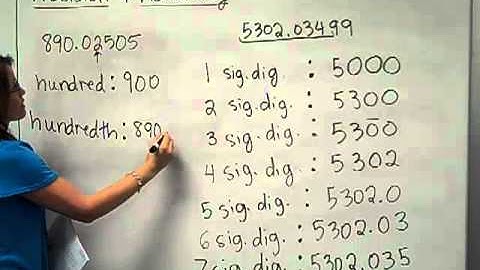 890.02505
hundred: 900
hundredth: 890
5302.03499
1 sig.dig. : 5000
2 sig.dig. : 5300
3 sig.dig. : 530̄0
4 sig.dig. : 5302
5 sig.dig. : 5302.0
6 sig.dig. : 5302.03
7 sig.dig. : 5302.035